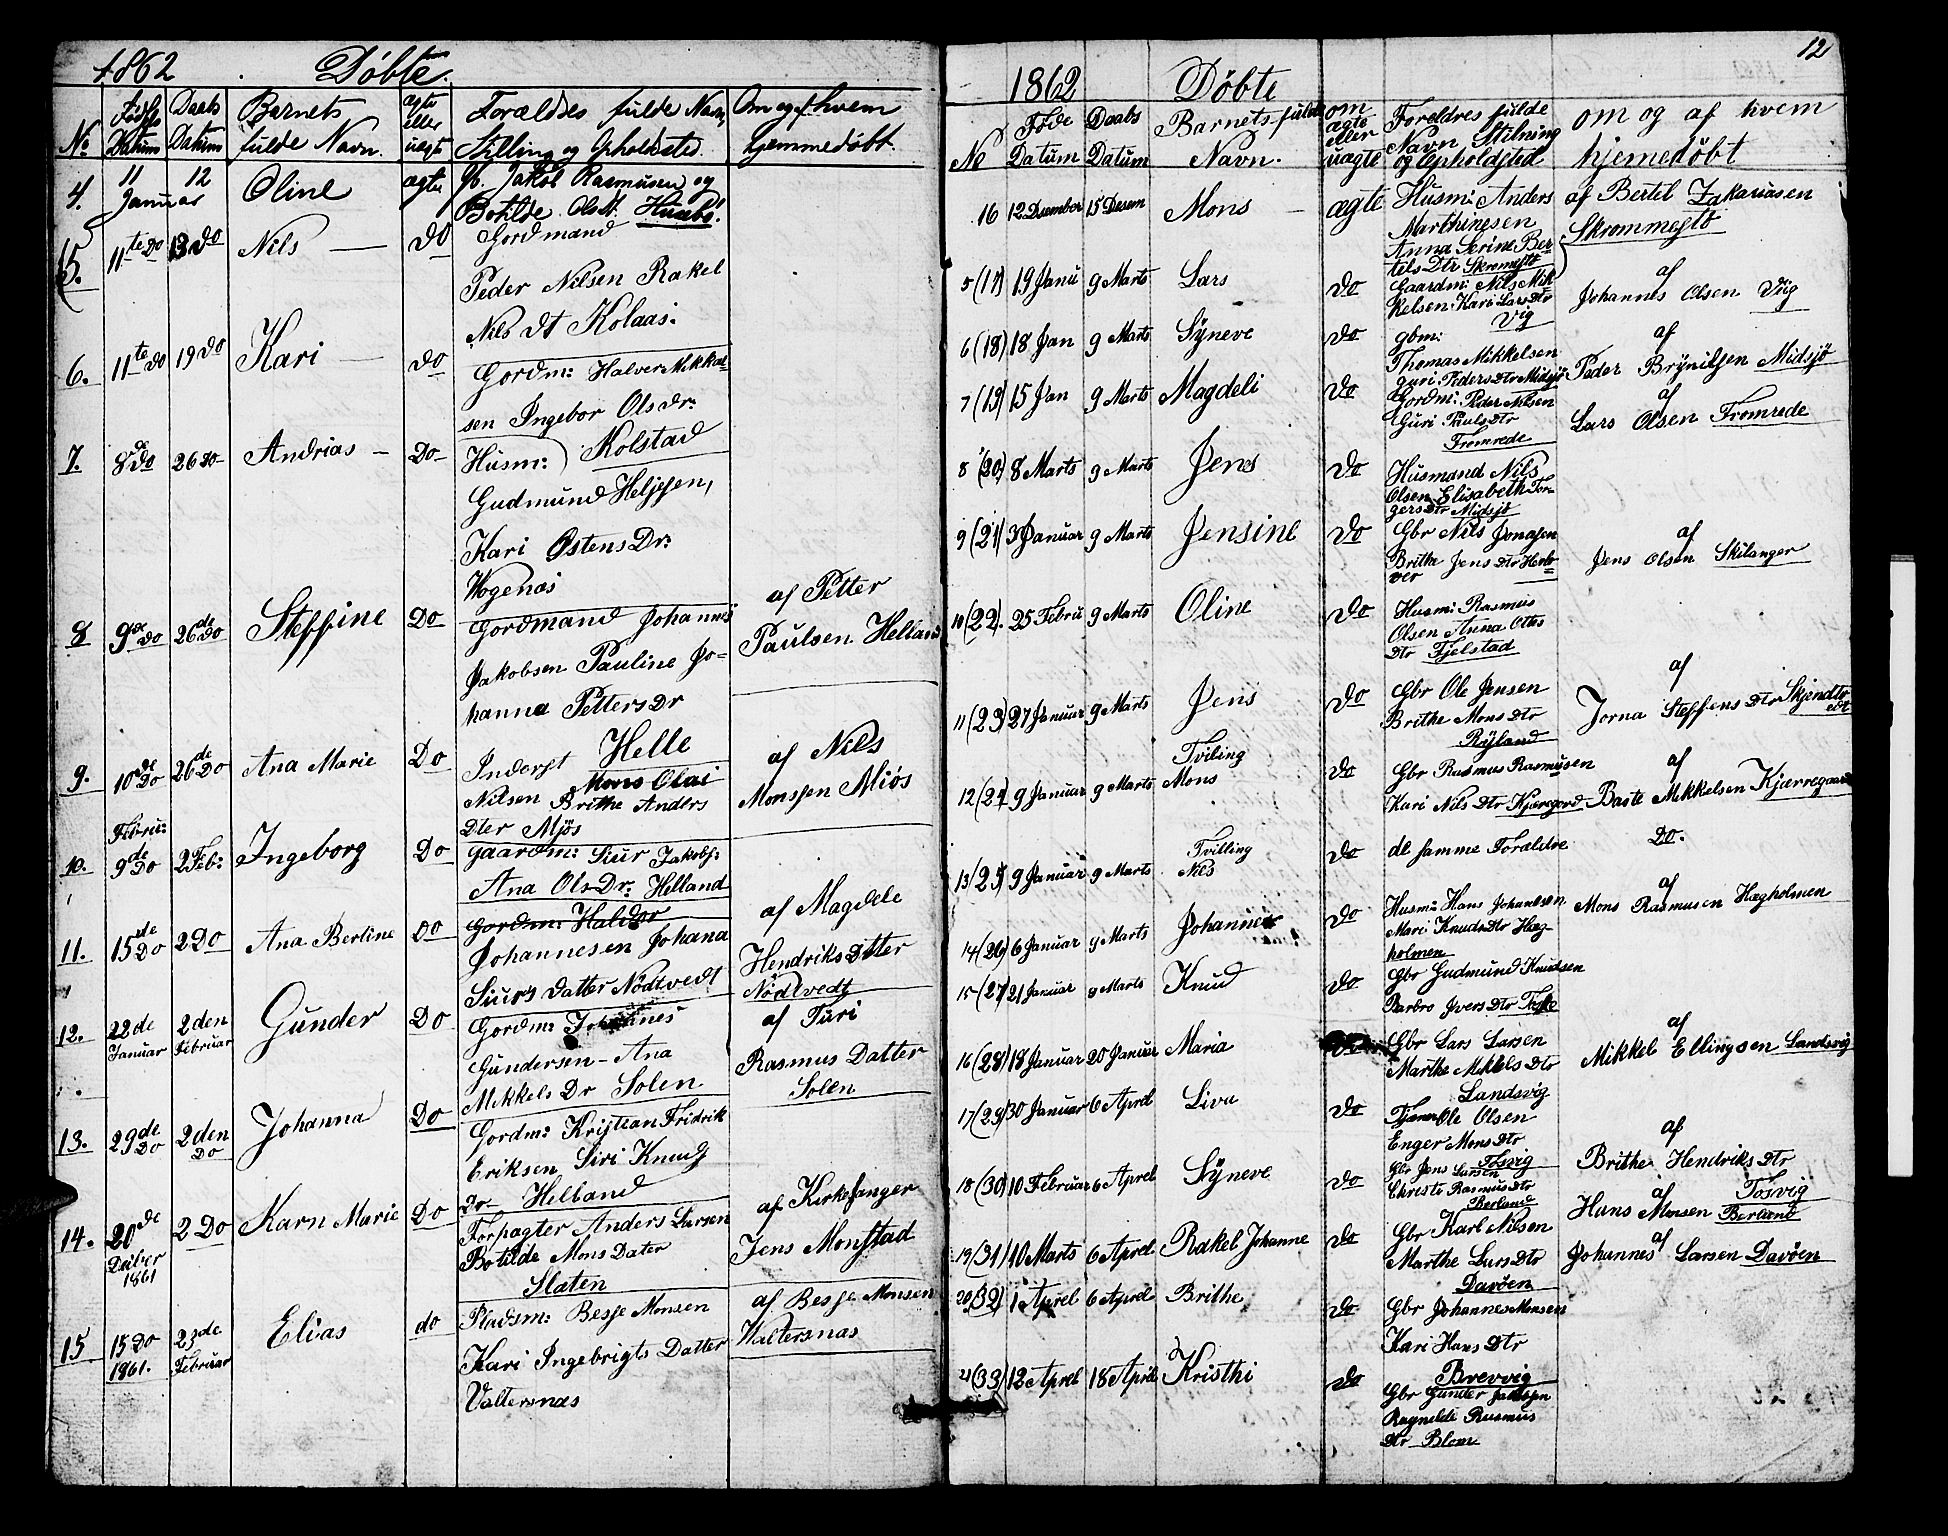 1862 Døbte.
No Føds Datum Daabs Datum Barnets fulde Navn. ægte eller uægte Forældres fulde Navn, Stilling og Opholdsted. Om og af hvem hjemmedøbt.
4. 11 Januar 12 Oline ægte Jakob Rasmusen og
Botilde Ols Husebø
5. 11te Do 13 Do Nils — do Gordmand
Peder Nilsen Rakel
Nils dt Kolaas.
6. 11te Do 19 Do Kari — do Gordm: Halver Mikkel-
sen Ingebor Olsdr:
Kolstad
7. 8de Do 26 Do Andrias — Do Husm:
Gudmund Heljesen,
Kari Østens Dr:
Vogenæs
8 9de Do 26de Do Steffine Do Gordmand Johannes
Jakobsen Pauline Jo-
hanna Petters Dr
Helle
af Petter
Paulsen Helland
9. 10de Do 26de Do Ana Marie Do Inderst
Nilsen Mons Olai
Brithe Anders
Dter Mjøs
af Nils
Monssen Miøs
10. Febru: 9de Do 2 Feb: Ingeborg Do Gaardm: Siur Jakobs:
Ana Ols Dr: Helland
11. 15de Do 2 Do Ana Berline Do Gordm: Haldor
Johannesen Johana
Siurs datter Nødtvedt
af Magdele
Hendriks Datter
Nødtvedt
12. 22de Januar 2den Februar Gunder Do Gordm: Johannes
Gundersen – Ana
Mikkels Dr Solen
af Turi
Rasmus Datter
Solen
13. 29de Do 2den Do Johanna Do Gordm: Kristian Fridrik
Eriksen Siri Knud
Dr Helland
14. 20de Dsiber 1861 2 Do Karn Marie Do Forpagter Anders Larsen
Botilde Mons Dater
Slaten
af Kirkesanger
Jens Monstad
15 15 Do 1861. 23de Februar Elias do Pladsm: Besse Monsen
Kari Ingebrigts Datter
Valtersnæs
af Besse Monsen
Valtersnas
12
1862 Døbte
No Føde Datum Daabs Datum Barnets fulde Navn. om ægte eller uægte Foreldres fulde Navn Stilning og Opholdsted om og af hvem hjemedøbt
16 12 Dsember 15 Desem Mons — ægte Husm: Anders
Marthinesen
Anna Serine Ber-
tels Dtr Skromestø
af Bertel Zakariasen
Skrommestø
5 (17) 19 Janu 9 Marts Lars do Gaardm: Nils Mik
kelsen Kari Lars Dtr
Vig
af
Johannes Olsen Viig
6 (18) 18 Jan 9 Marts Sÿneve do gbm:
Thomas Mikkelsen
guri Peders Dtr Midsjø
af
Peder Brÿnilsen Midsjø
7 (19) 15 Jan 9 Marts Magdeli do Gordm: Peder Nilsen
Guri Pauls Dtr
Fromrede
af
Lars Olsen Fromrede
8 (20) 8 Marts 9 Marts Jens do Husmand Nils
Olsen Elisabeth Tor-
gers Dtr Midsjø
9 (21) 3 Januar 9 Marts Jensine do Gbr Nils Jonasen
Brithe Jens Dtr Herlø-
ver
af
Jens Olsen Skilanger
10 (22). 25 Febru 9 Marts Oline do Husm: Rasmus
Olsen Anna Ottes
Dtr Fjelstad
11 (23) 27 Januar 9 Marts Jens do Gbr Ole Jensen
Brithe Mons Dtr
Rÿland
af
Jorna Steffens Dtr
12 (24) 9 Januar 9 Marts Tviling
Mons do Gbr Rasmus Rasmusen
Kari Nils Dtr Kjæregord
af
Baste Mikkelsen Kjærregaard
13 (25) 9 Januar 9 Marts Tvilling
Nils do de samme Forældre Do.
14 (26) 6 Januar 9 Marts Johannes do Husm: Hans Johannesen
Mari Knuds Dtr Hæg-
holmen
af
Mons Rasmusen Hægholmen
15 (27) 21 Januar 9 Marts Knud do Gbr Gudmund Knudsen
Barbro Ivers Dtr Toske
16 (28) 18 Januar 20 Januar Maria Do Gbr Lars Larsen
Marthe Mikkels Dtr
Landsvig
af
Mikkel Ellingsen Landsvig
17 (29) 30 Januar 6 Aprel Liva do Tjener Ole Olsen
Enger Mons Dtr
Tosvig
af
Brithe Hendriks Dtr
Tosvig
18 (30) 10 Februar 6 Aprel Sÿneve do Gbr Jens Larsen
Christi Rasmus Dtr
Berland
af
Hans Monsen Berland
19 (31) 10 Marts 6 Aprel Rakel Johanne do Gbr Karl Nilsen
Marthe Lars Dtr
Davøen
af
Johannes Larsen Davøen
20 (32) 1 Aprel 6 Aprel Brithe do Gbr Johannes Monsen
Kari Hans Dtr
Brevvig
21 (33) 12 Aprel 18 Aprel Kristhi do Gbr Gunder Jakobsen
Ragnilde Rasmus
Dtr Blom